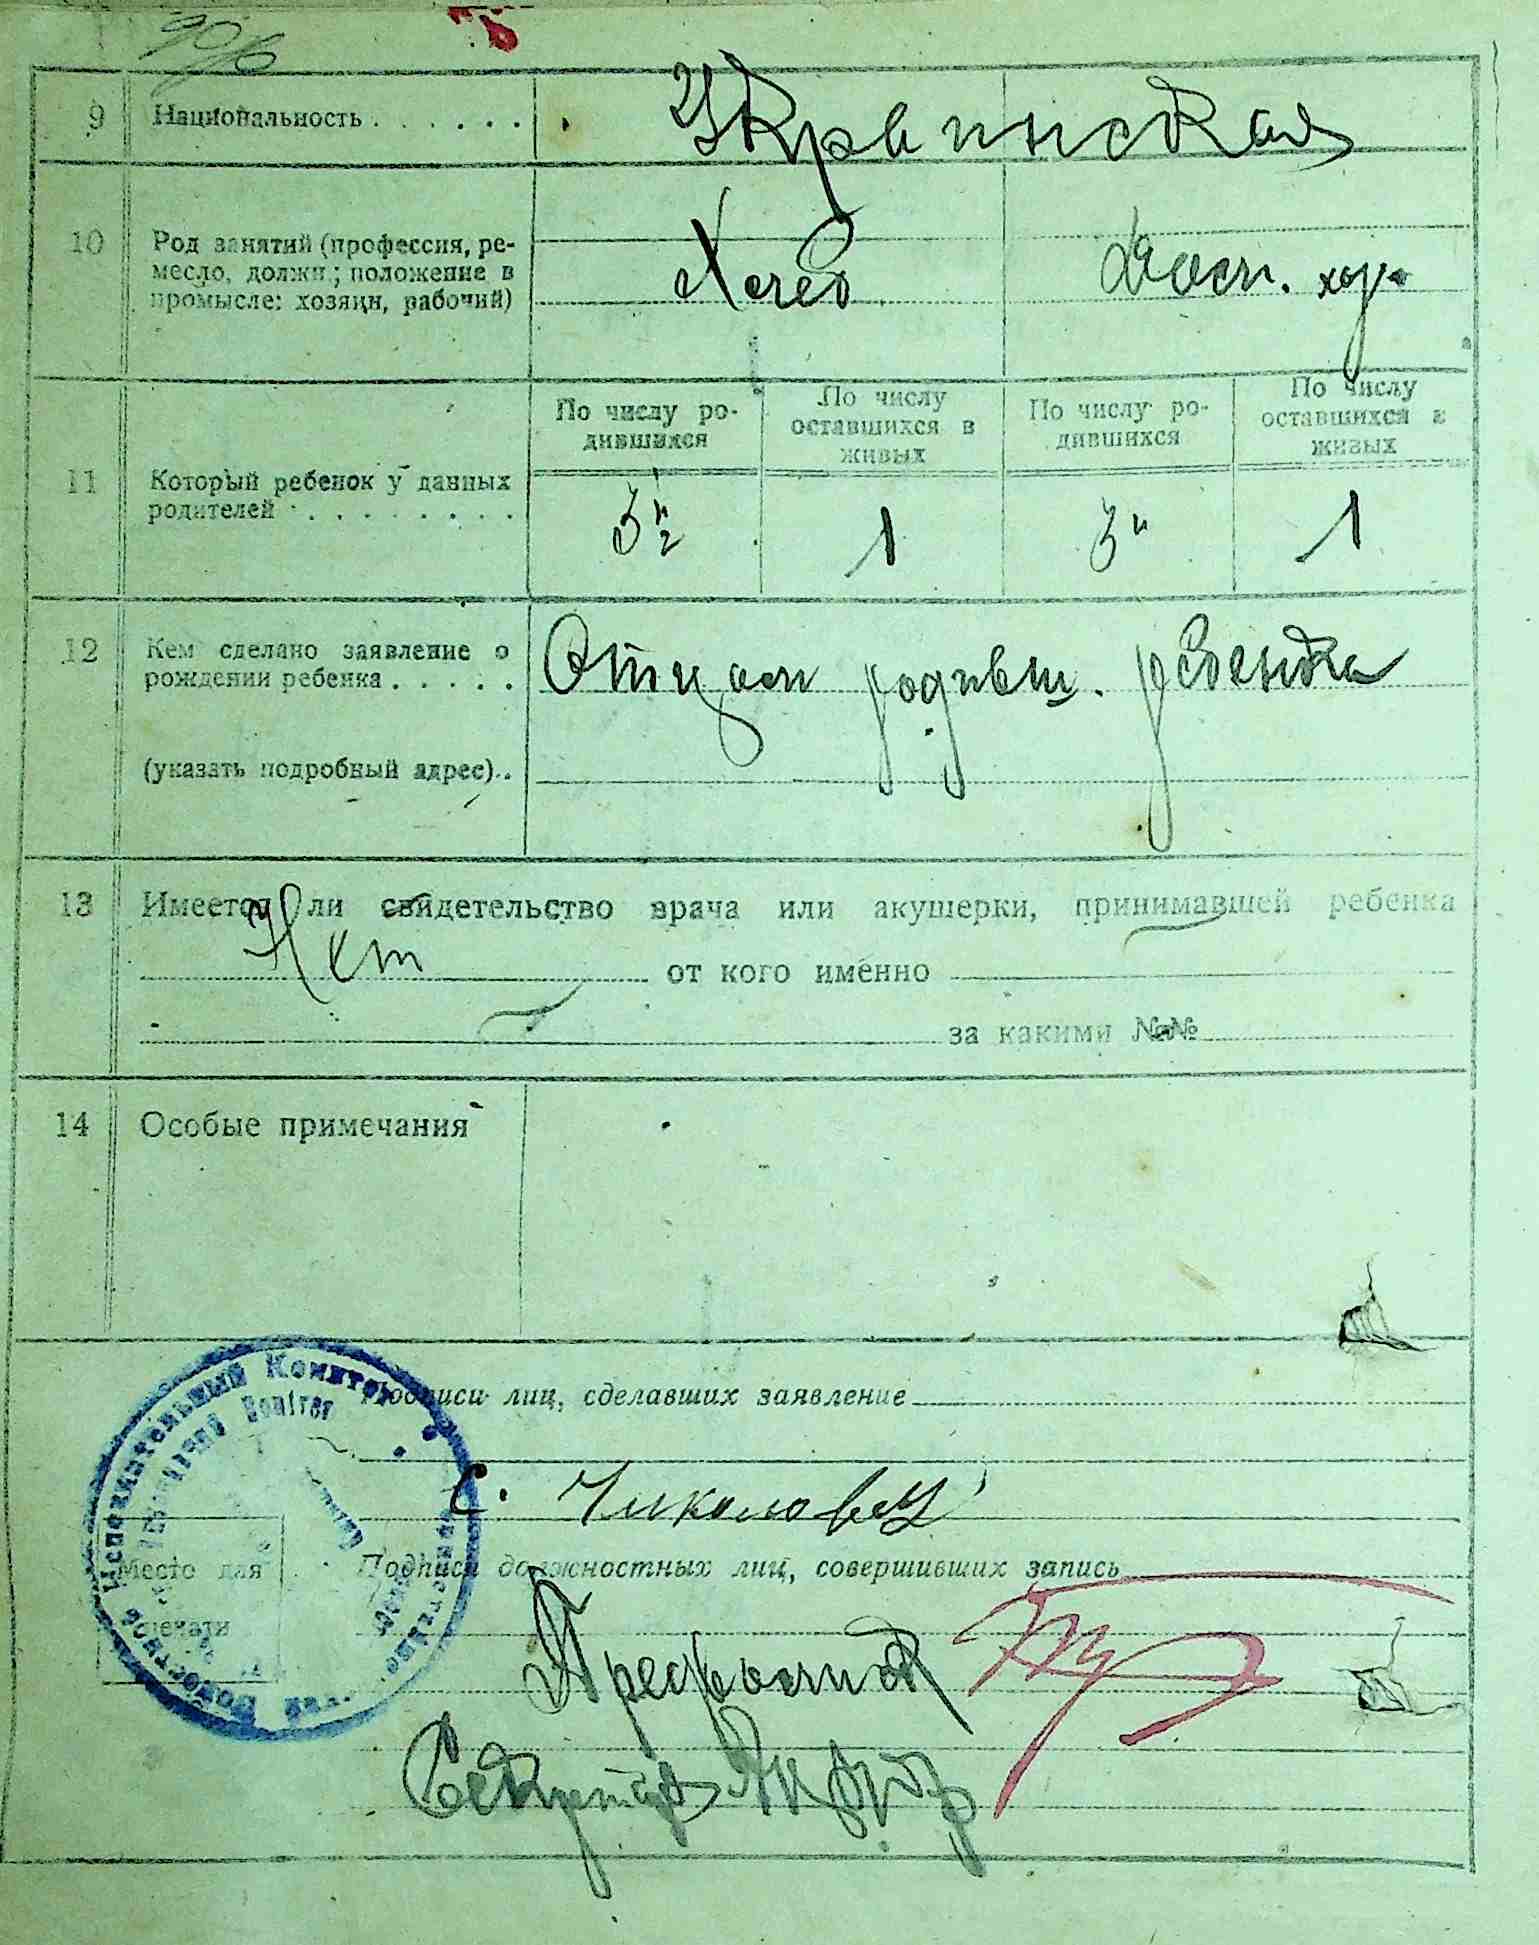 9 Национальность . . . . . . Украинская
10 Род занятий (профессия, ре-
месло, должн.; положение в
промысле: хозяин, рабочий)
Хлеб Дом. хоз.
11 Который ребенок у данных
родителей . . . . . . . . .
По числу ро-
дившихся
По числу
оставшихся в
живых
По числу ро-
дившихся
По числу
оставшихся в
живых
3й 1 3й 1
12 Кем сделано заявление о
рождении ребенка . . . . .
(указать подробный адрес)..
Отцом родивш. ребенка
13 Имеется ли свидетельство врача или акушерки, принимавшей ребенка
Нет от кого именно
за какими №№
14 Особые примечания
Подписи лиц, сделавших заявление
С. Чиколовец
Подписи должностных лиц, совершивших запись
Место для
печати
Волостной Исполнительный Комитет
Секретарь